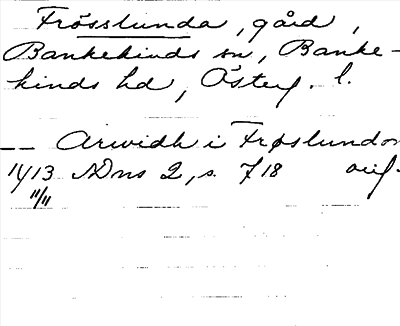 Frösslunda, gård,
Bankekinds sn, Banke-
kinds hd, Österg. l.
-- Arwidh i Frøslundom
1413 NDns 2, s. 718 orig.
11/11